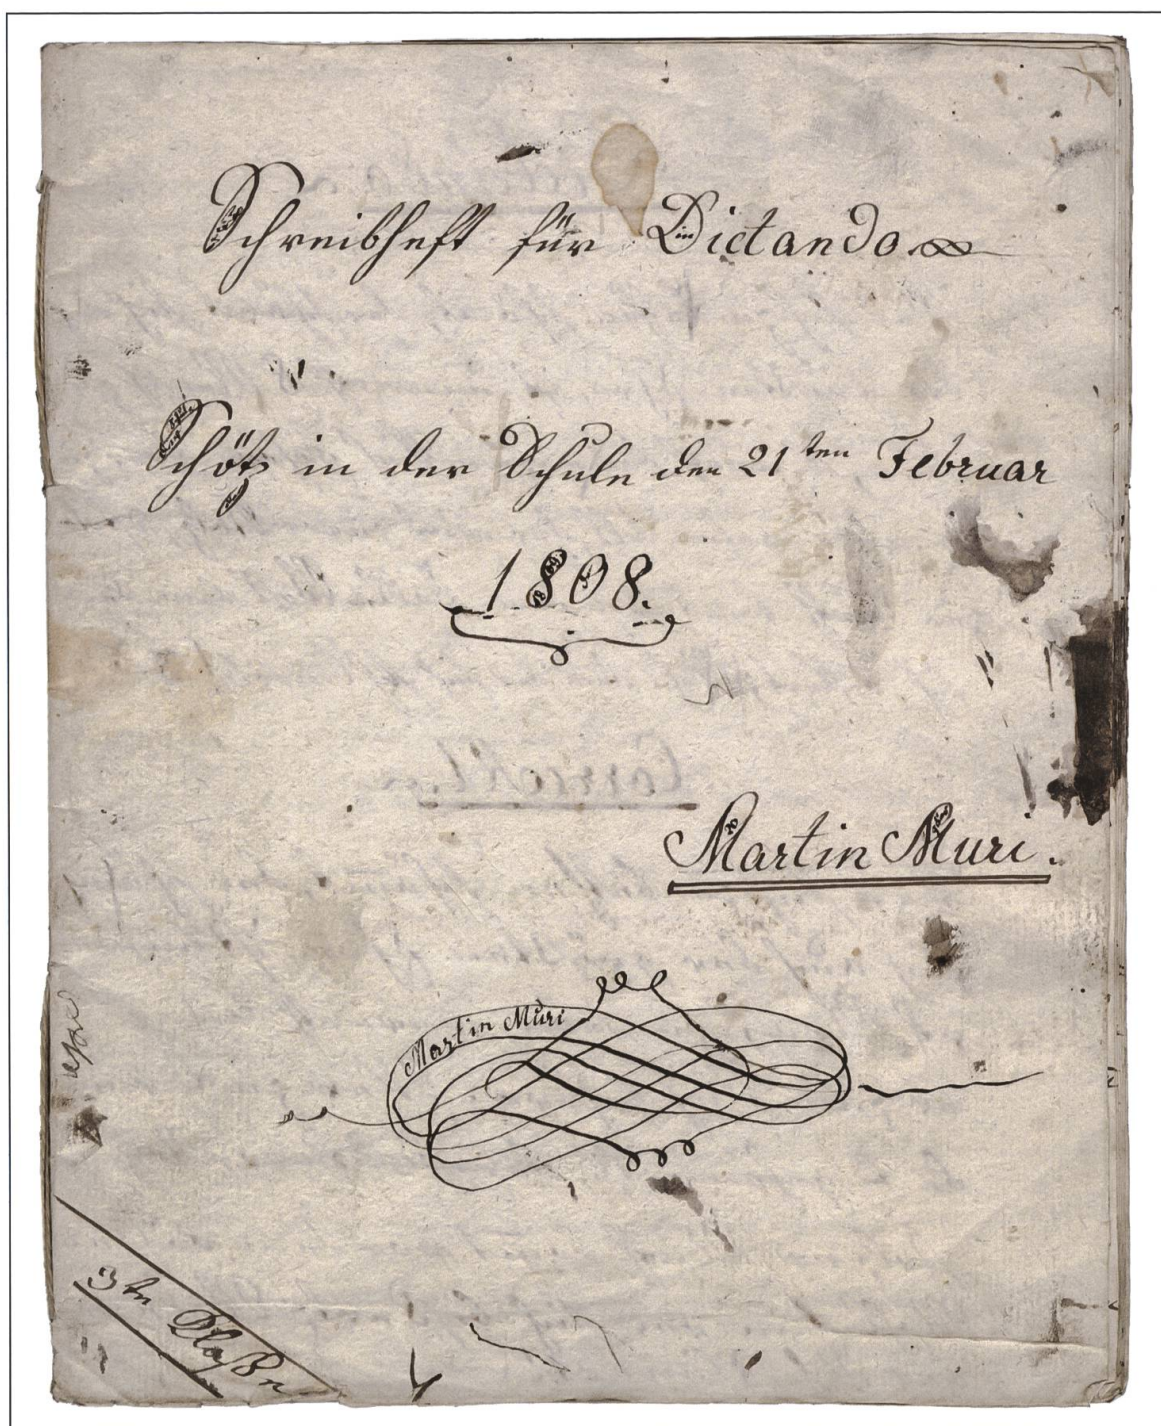 Schreibheft für Dictando
Schötz in der Schule den 21ten Februar
1808.
Martin Muri.
Martin Muri
3te Classe